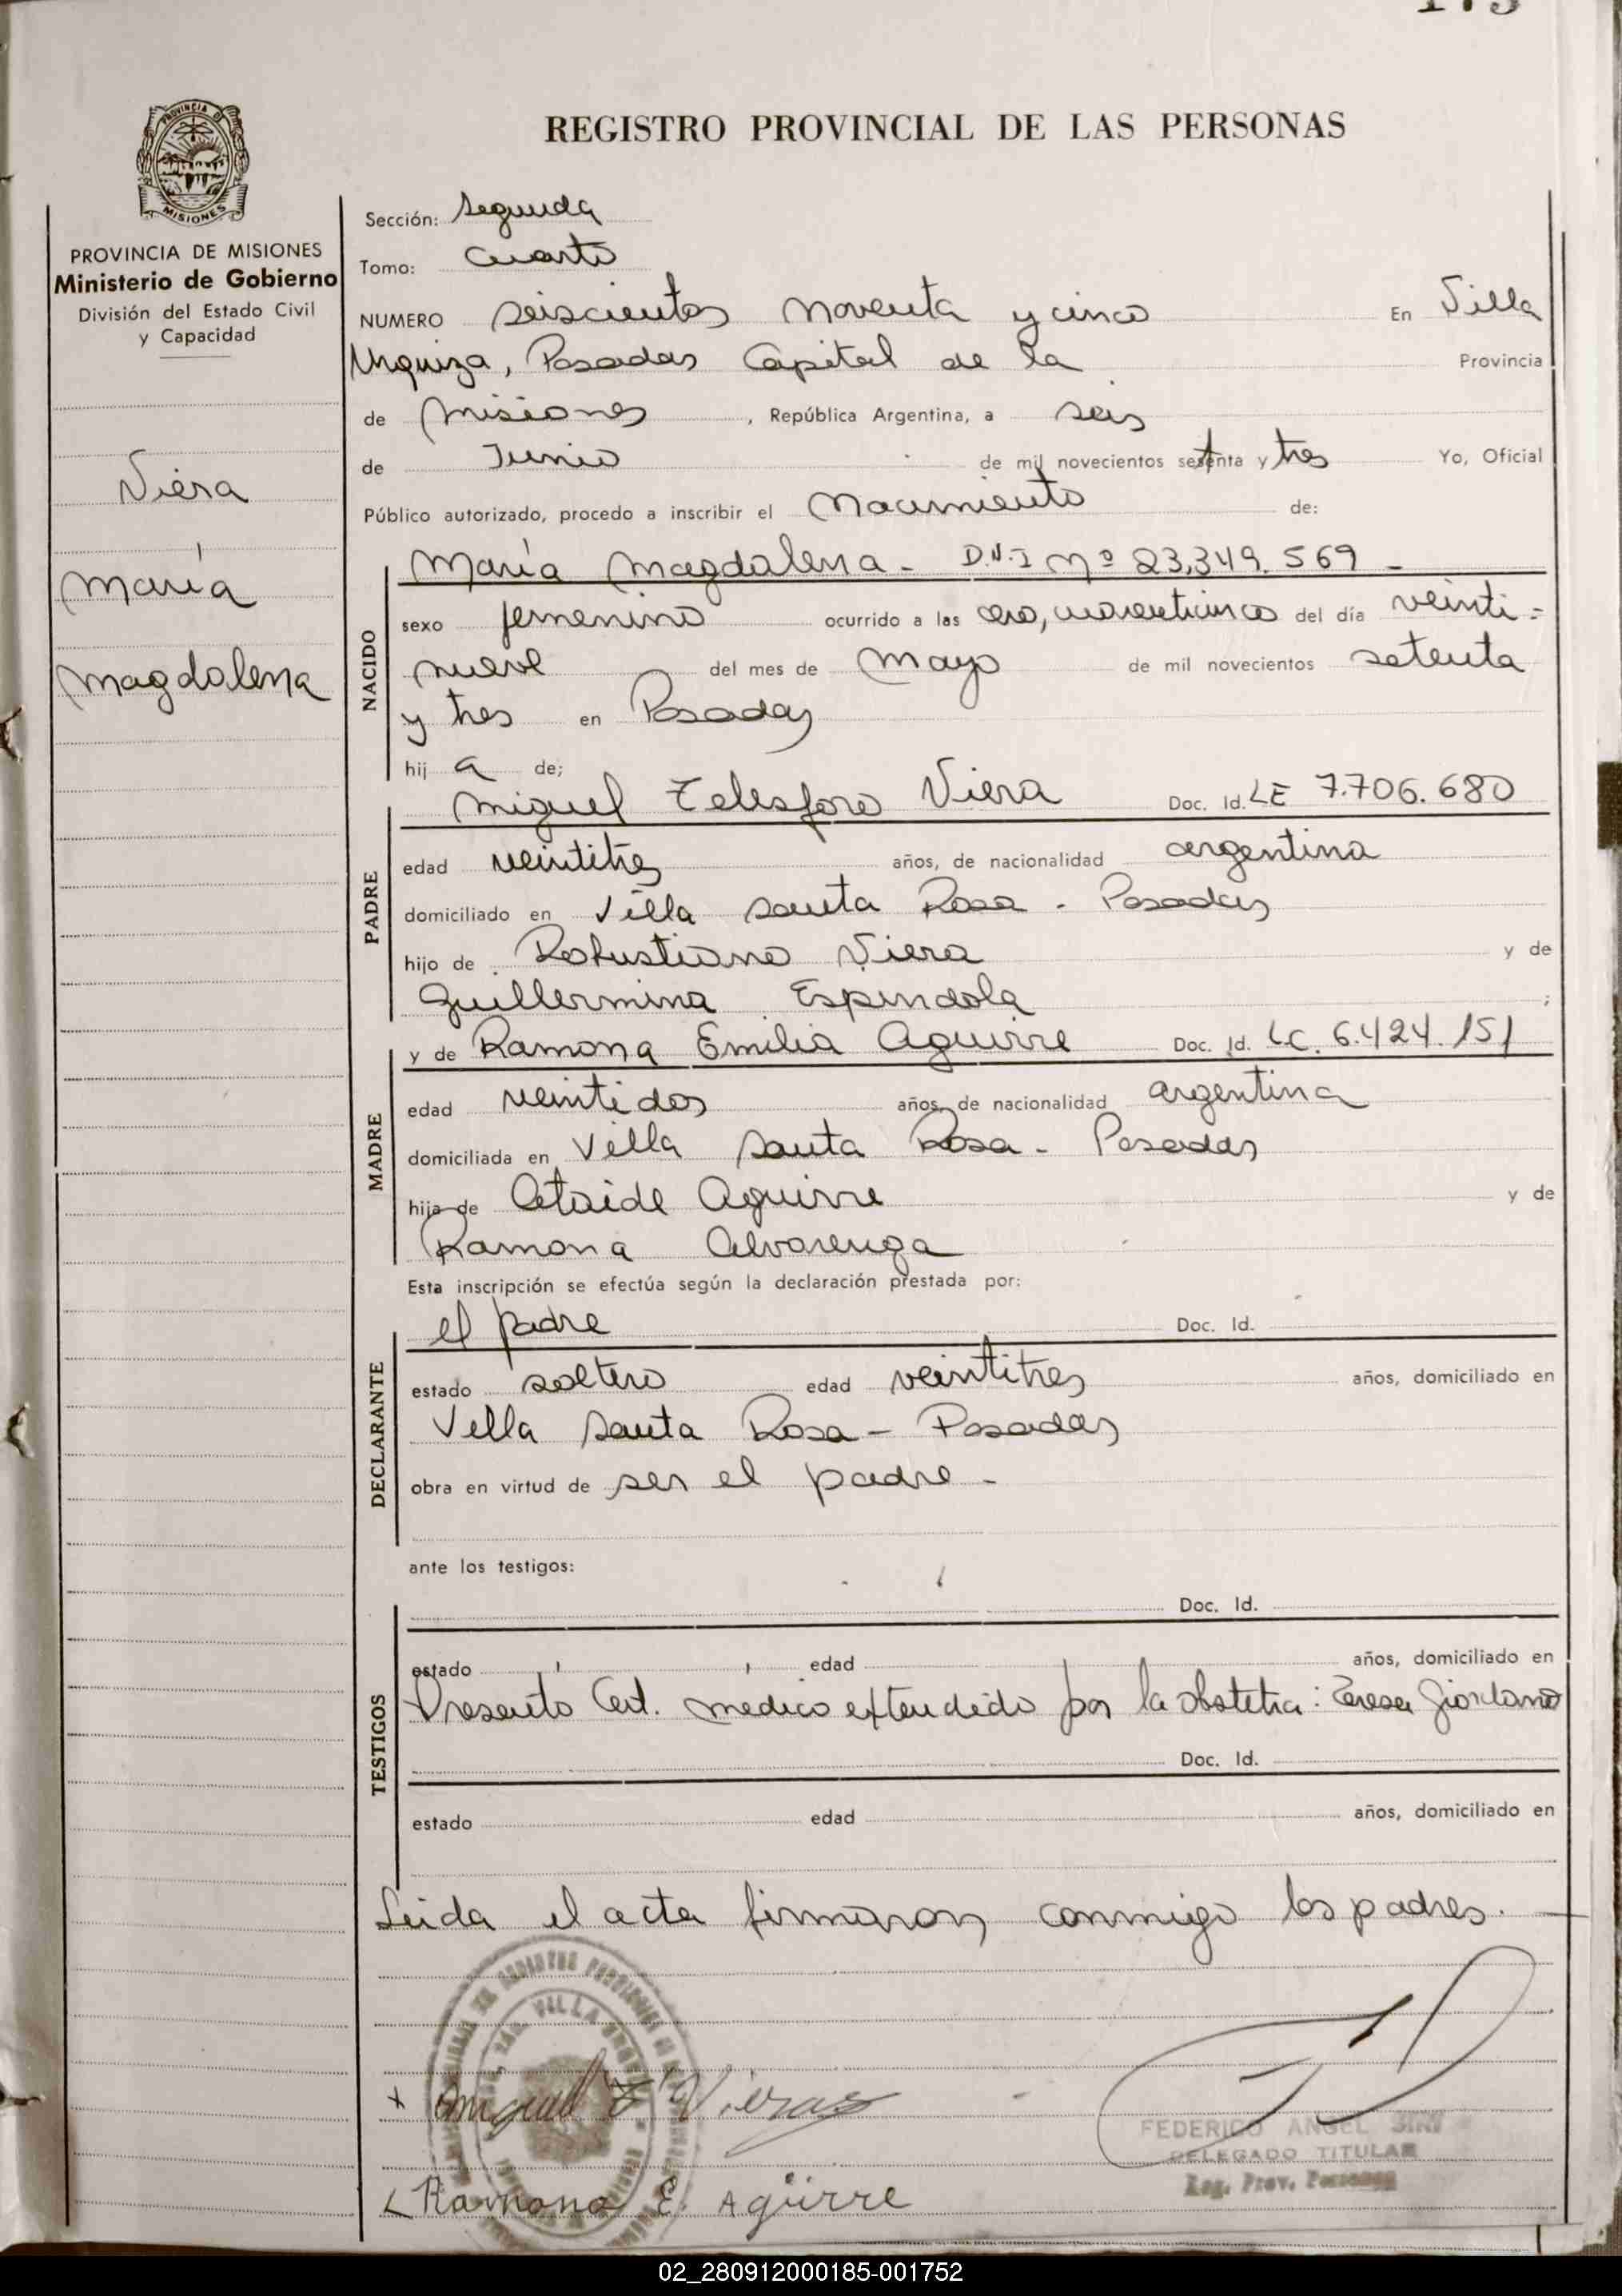 REGISTRO PROVINCIAL DE LAS PERSONAS
PROVINCIA DE MISIONES
Ministerio de Gobierno
División del Estado Civil
y Capacidad
Viera
María
Magdalena
Sección: Segunda
Tomo: Cuarto
NUMERO seiscientos noventa y cinco En Villa
Urquiza, Posadas Capital de la Provincia
de Misiones, República Argentina, a seis
de Junio de mil novecientos setenta y tres Yo, Oficial
Público autorizado, procedo a inscribir el Nacimiento de:
NACIDO
María Magdalena - D.N.I Nº 23,349.569 -
sexo femenino ocurrido a las cero, cuarenticinco del día veinti=
nueve del mes de Mayo de mil novecientos setenta
y tres en Posadas
hij a de;
PADRE
Miguel Telesforo Viera Doc. Id. LE 7.706.680
edad veintitres años, de nacionalidad argentina
domiciliado en Villa Santa Rosa - Posadas
hijo de Robustiano Viera y de
Guillermina Espindola ;
MADRE
y de Ramona Emilia Aguirre Doc. Id. LC. 6.424.151
edad veintidos años, de nacionalidad argentina
domiciliada en Villa Santa Rosa - Posadas
hija de Ataide Aguirre y de
Ramona Alvarenga
Esta inscripción se efectúa según la declaración prestada por:
DECLARANTE
el padre Doc. Id.
estado soltero edad veintitres años, domiciliado en
Villa Santa Rosa - Posadas
obra en virtud de ser el padre -
ante los testigos:
TESTIGOS
Doc. Id.
estado edad años, domiciliado en
Presento Cert. medico extendido por la obstetra: Teresa Giordano
Doc. Id.
estado edad años, domiciliado en
Leida el acta firmaron conmigo los padres.
VILLA
x Miguel T. Vieras
FEDERICO ANGEL
DELEGADO TITULAR
Reg. Prov. Personas
Ramona E. Agürre
02_280912000185-001752